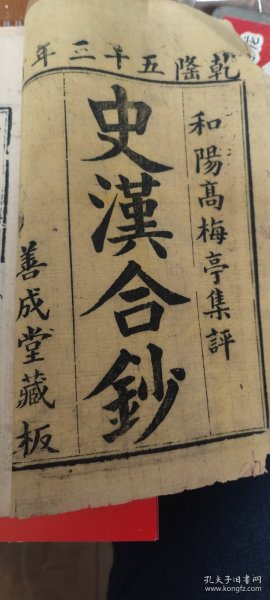 乾隆五十三年
和陽高梅亭集評
史漢合鈔
善成堂藏板
孔夫子旧书网